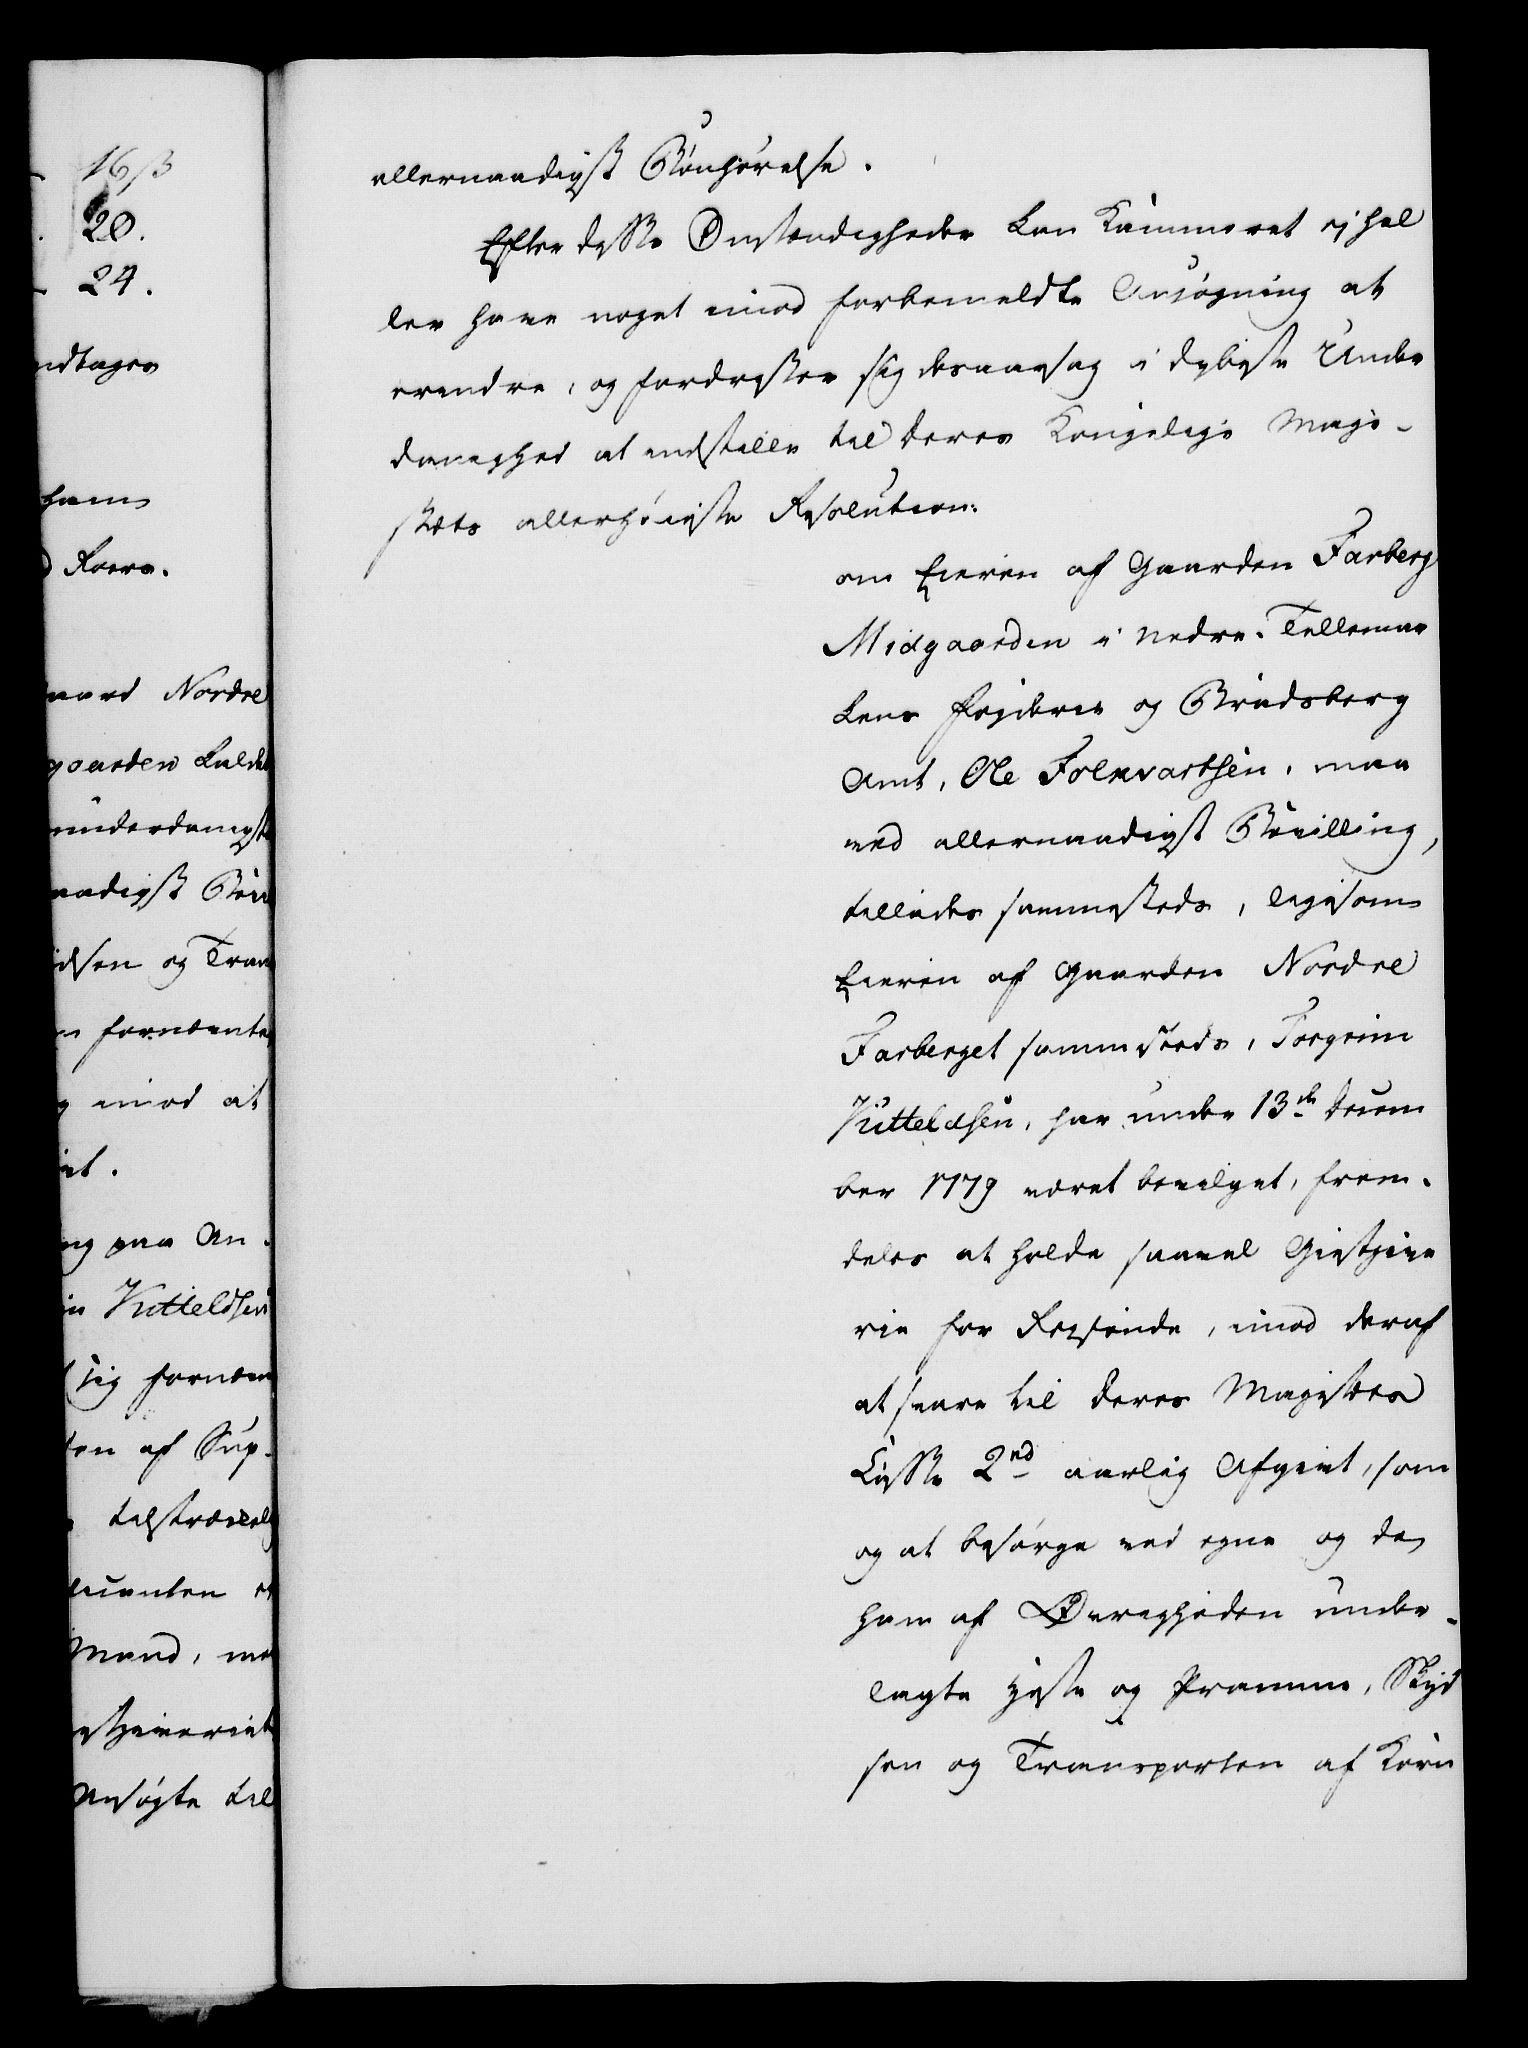 16 ß
20.
24.
ndtages
ham
d Roers.
aard Nordre
gaarden kaldet
underdanigst
naadigst Bev
dsen og Tran
fornævnte
imod at
et.
ng paa An-
in Kittelsen
sig fornæv
en af Sup-
tilstrækkelig
icanten e
Mand, me
estgiveriet
Ansøgte til
allernaadigst Bønhørelse.
Efter disse Omstændigheder kan Kammeret ej hel
ler have noget imod forbemeldte Ansøgning at
erindre, og fordrister sig desaarsag i dybeste Under
danighed at indstille til Deres Kongelige Maje-
stæts allerhøieste Resolution:
om Eieren af Gaarden Farberg
Midgaarden i Nedre-Tellemar
kens Fogderie og Bradsberg
Amt, Ole Folkvartsen, maa
ved allernaadigst Bevilling,
tillades sammesteds, ligesom
Eieren af Gaarden Nordre
Farberget sammesteds, Torgrim
Kittelsen, har under 13de Decem
ber 1779 været bevilget, frem-
deles at holde saavel Giestgive
rie for Reisende, imod deraf
at svare til Deres Majestæts
Casse 2rd aarlig Afgivt, som
og at besørge ved egne og de
ham af Øvrigheden under-
lagte Heste og Pramme, Skyd
sen og Transporten af Korn